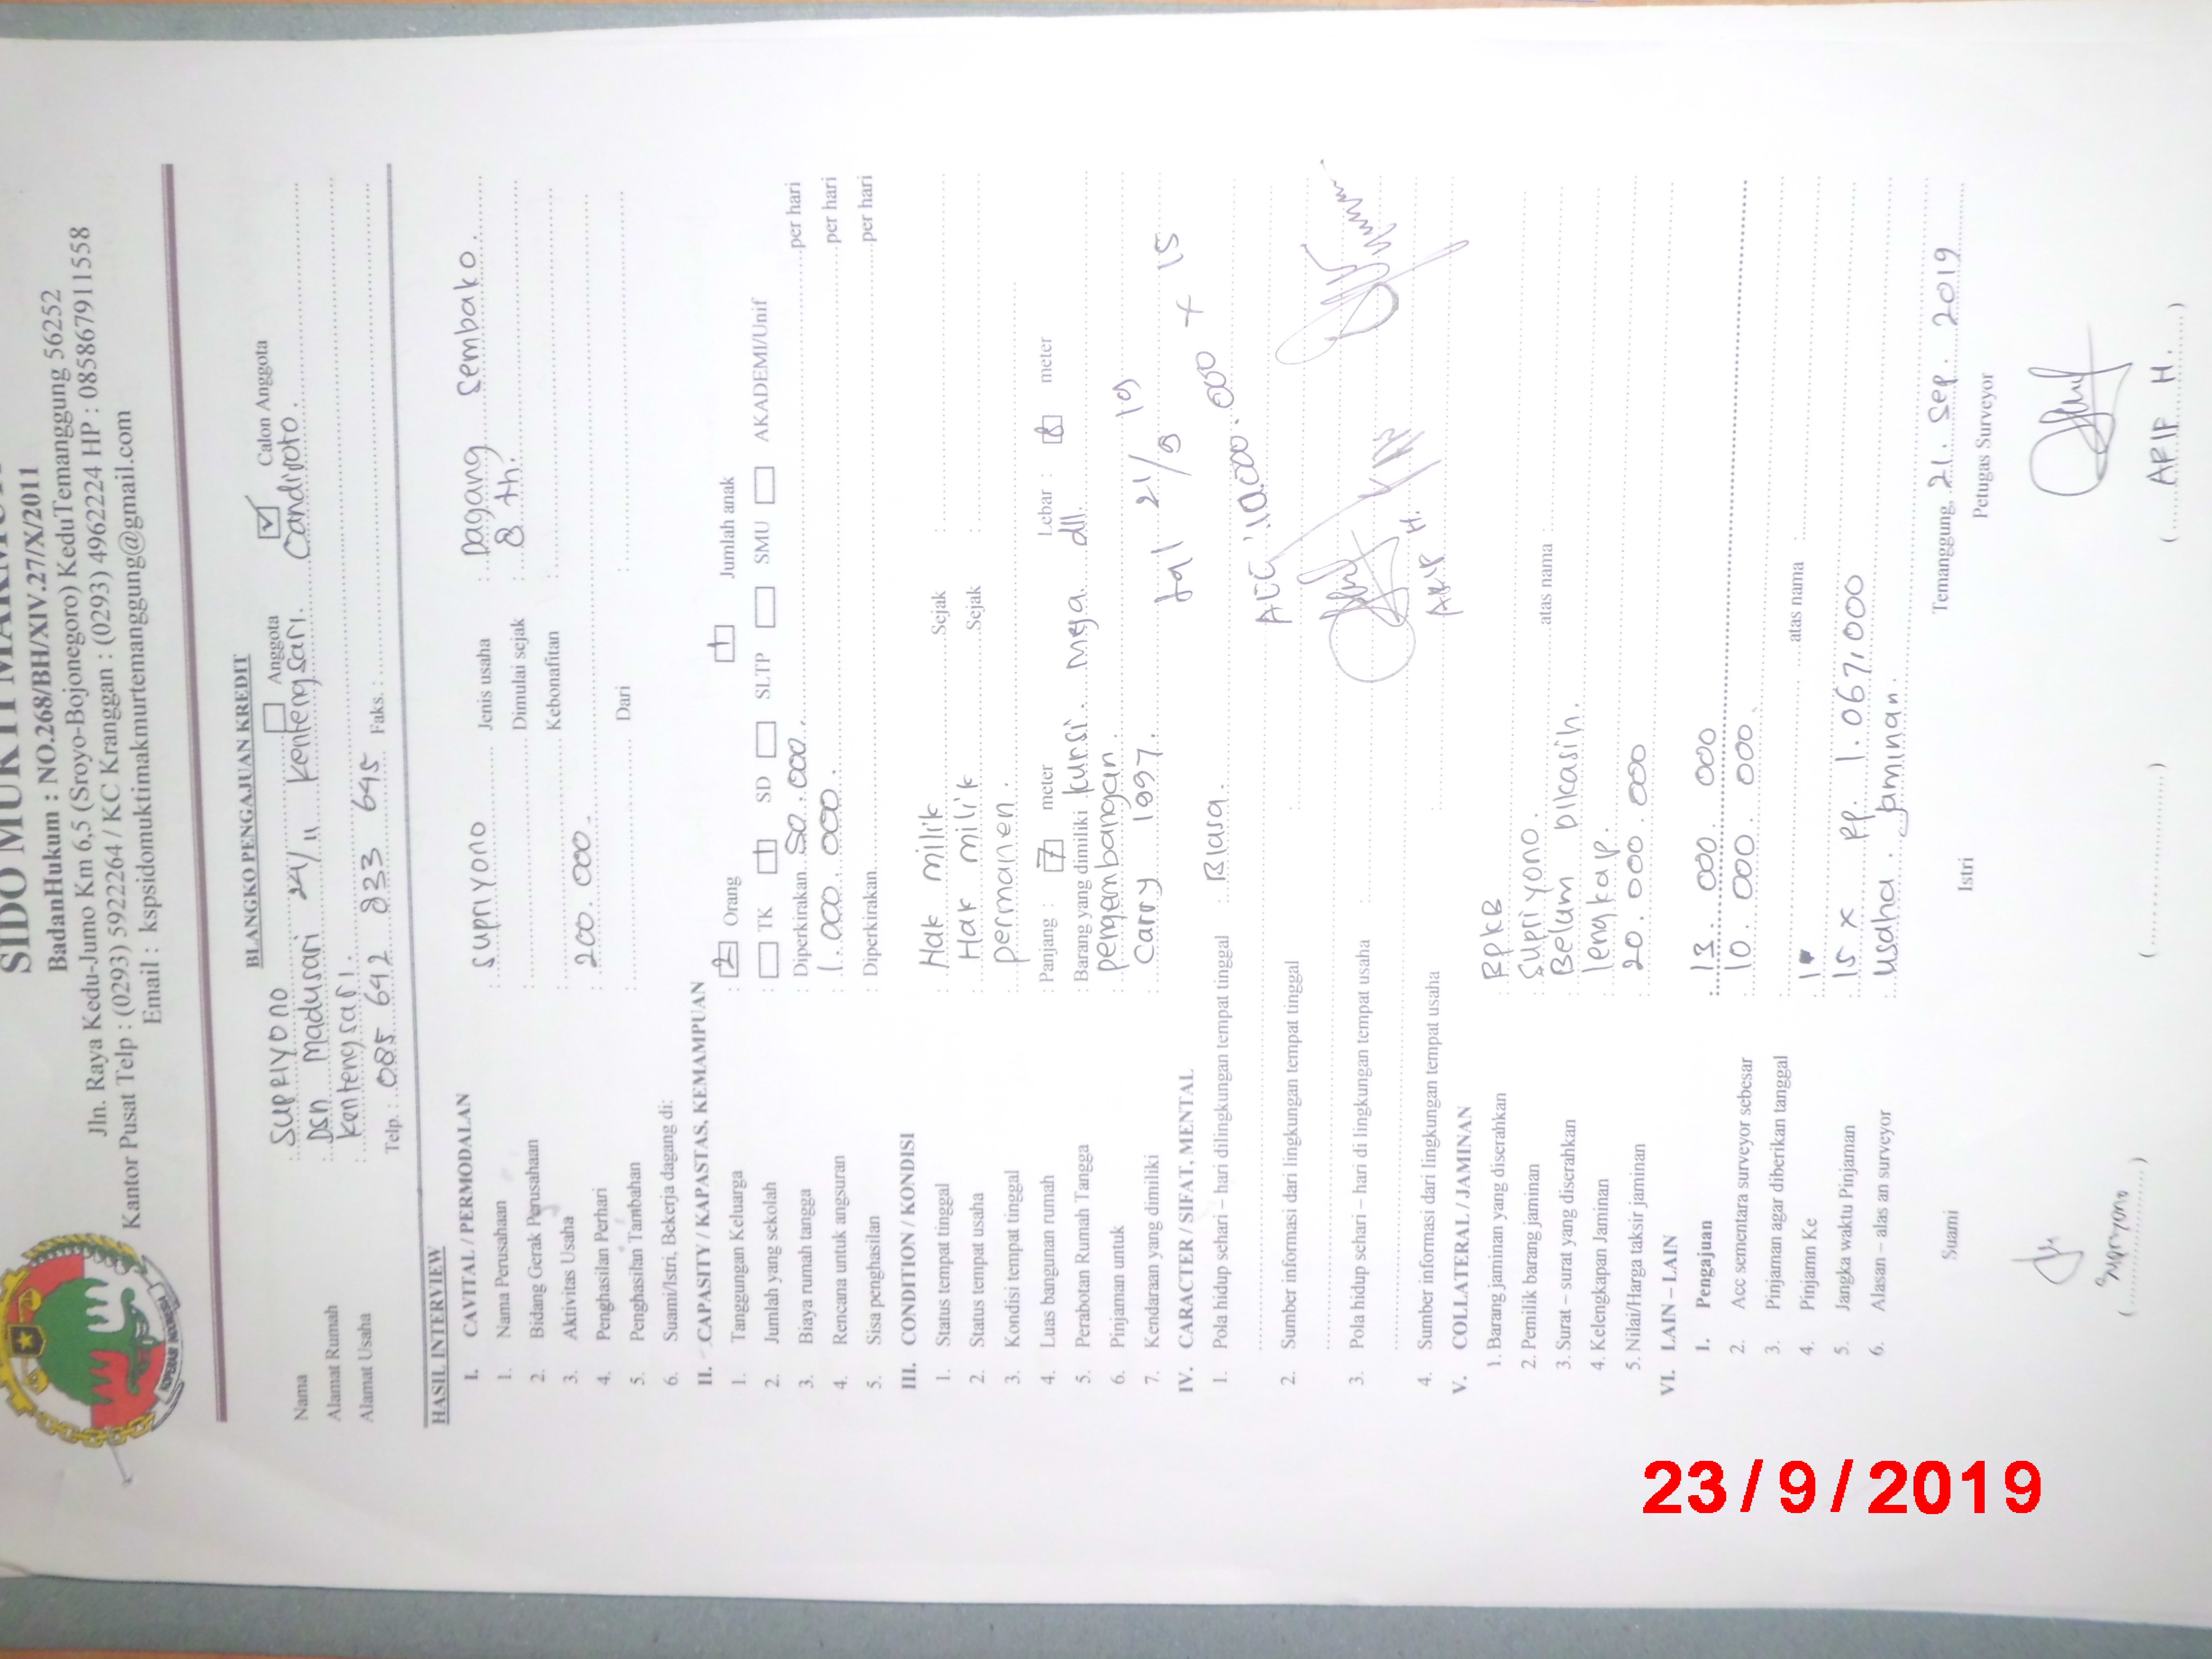 SIDO MUKTI MAKMUR
BadanHukum : NO.268/BH/XIV.27/X/2011
Jln. Raya Kedu-Jumo Km 6,5 (Sroyo-Bojonegoro) KeduTemanggung 56252
Kantor Pusat Telp : (0293) 5922264 / KC Kranggan : (0293) 4962224 HP : 085867911558
Email : kspsidomuktimakmurtemanggung@gmail.com
KOPERASI INDONESIA
BLANGKO PENGAJUAN KREDIT
Anggota Calon Anggota
Nama : SUPRIYONO
Alamat Rumah : Dsn Madusari 24/11 Kentengsari. Candiroto.
Alamat Usaha : Kentengsari.
Telp. : 085 642 233 645 Faks. :
HASIL INTERVIEW
I. CAVITAL / PERMODALAN
1. Nama Perusahaan : Supriyono Jenis usaha : Dagang Sembako.
2. Bidang Gerak Perusahaan : Dimulai sejak : 8 th.
3. Aktivitas Usaha : Kebonafitan :
4. Penghasilan Perhari : 200.000.
5. Penghasilan Tambahan : Dari :
6. Suami/Istri, Bekerja dagang di:
II. CAPASITY / KAPASTAS, KEMAMPUAN
1. Tanggungan Keluarga : 2 Orang 1 Jumlah anak
2. Jumlah yang sekolah : TK 1 SD SLTP SMU AKADEMI/Unif
3. Biaya rumah tangga : Diperkirakan 50.000. per hari
4. Rencana untuk angsuran : 1.000.000. per hari
5. Sisa penghasilan : Diperkirakan per hari
III. CONDITION / KONDISI
1. Status tempat tinggal : Hak milik Sejak :
2. Status tempat usaha : Hak milik Sejak :
3. Kondisi tempat tinggal : permanen.
4. Luas bangunan rumah : Panjang : 7 meter Lebar : 8 meter
5. Perabotan Rumah Tangga : Barang yang dimiliki kursi. meja dll.
6. Pinjaman untuk : pengembangan.
7. Kendaraan yang dimiliki : Carry 1997.
IV. CARACTER / SIFAT, MENTAL
1. Pola hidup sehari – hari dilingkungan tempat tinggal : Biasa.
2. Sumber informasi dari lingkungan tempat tinggal :
3. Pola hidup sehari – hari di lingkungan tempat usaha :
4. Sumber informasi dari lingkungan tempat usaha :
21/9 19
ACC 10.000.000 x 15
ARIP H.
V. COLLATERAL / JAMINAN
1. Barang jaminan yang diserahkan : BPKB
2. Pemilik barang jaminan : Supriyono. atas nama :
3. Surat – surat yang diserahkan : Belum dikasih.
4. Kelengkapan Jaminan : lengkap.
5. Nilai/Harga taksir jaminan : 20.000.000
VI. LAIN – LAIN
1. Pengajuan : 13.000.000
2. Acc sementara surveyor sebesar : 10.000.000.
3. Pinjaman agar diberikan tanggal : atas nama :
4. Pinjamn Ke : 1
5. Jangka waktu Pinjaman : 15 x Rp. 1.067.000
6. Alasan – alas an surveyor : usaha. jaminan.
Temanggung, 21. Sep. 2019
Suami Istri Petugas Surveyor
(..............) (..............) (ARIP H.)
23/9/2019